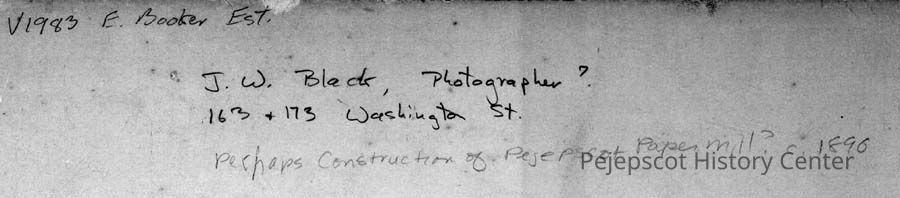 V1983 E. Booker Est.
J. W. Black, Photographer?
163 + 173 Washington St.
Perhaps Construction of Pejepscot Paper mill? c. 1890
Pejepscot History Center